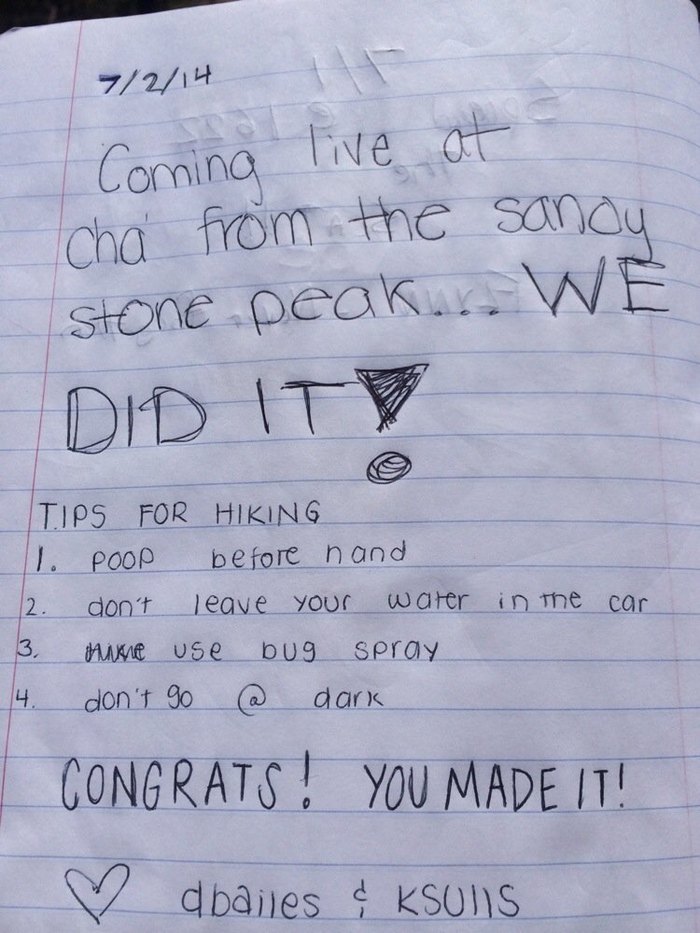 7/2/14
Coming live at
cha from the sandy
stone peak... WE
DID IT!
TIPS FOR HIKING
1. POOP before hand
2. don't leave your water in the car
3. use bug spray
4. don't go @ dark
CONGRATS! YOU MADE IT!
♡ dbailes & KSUllS